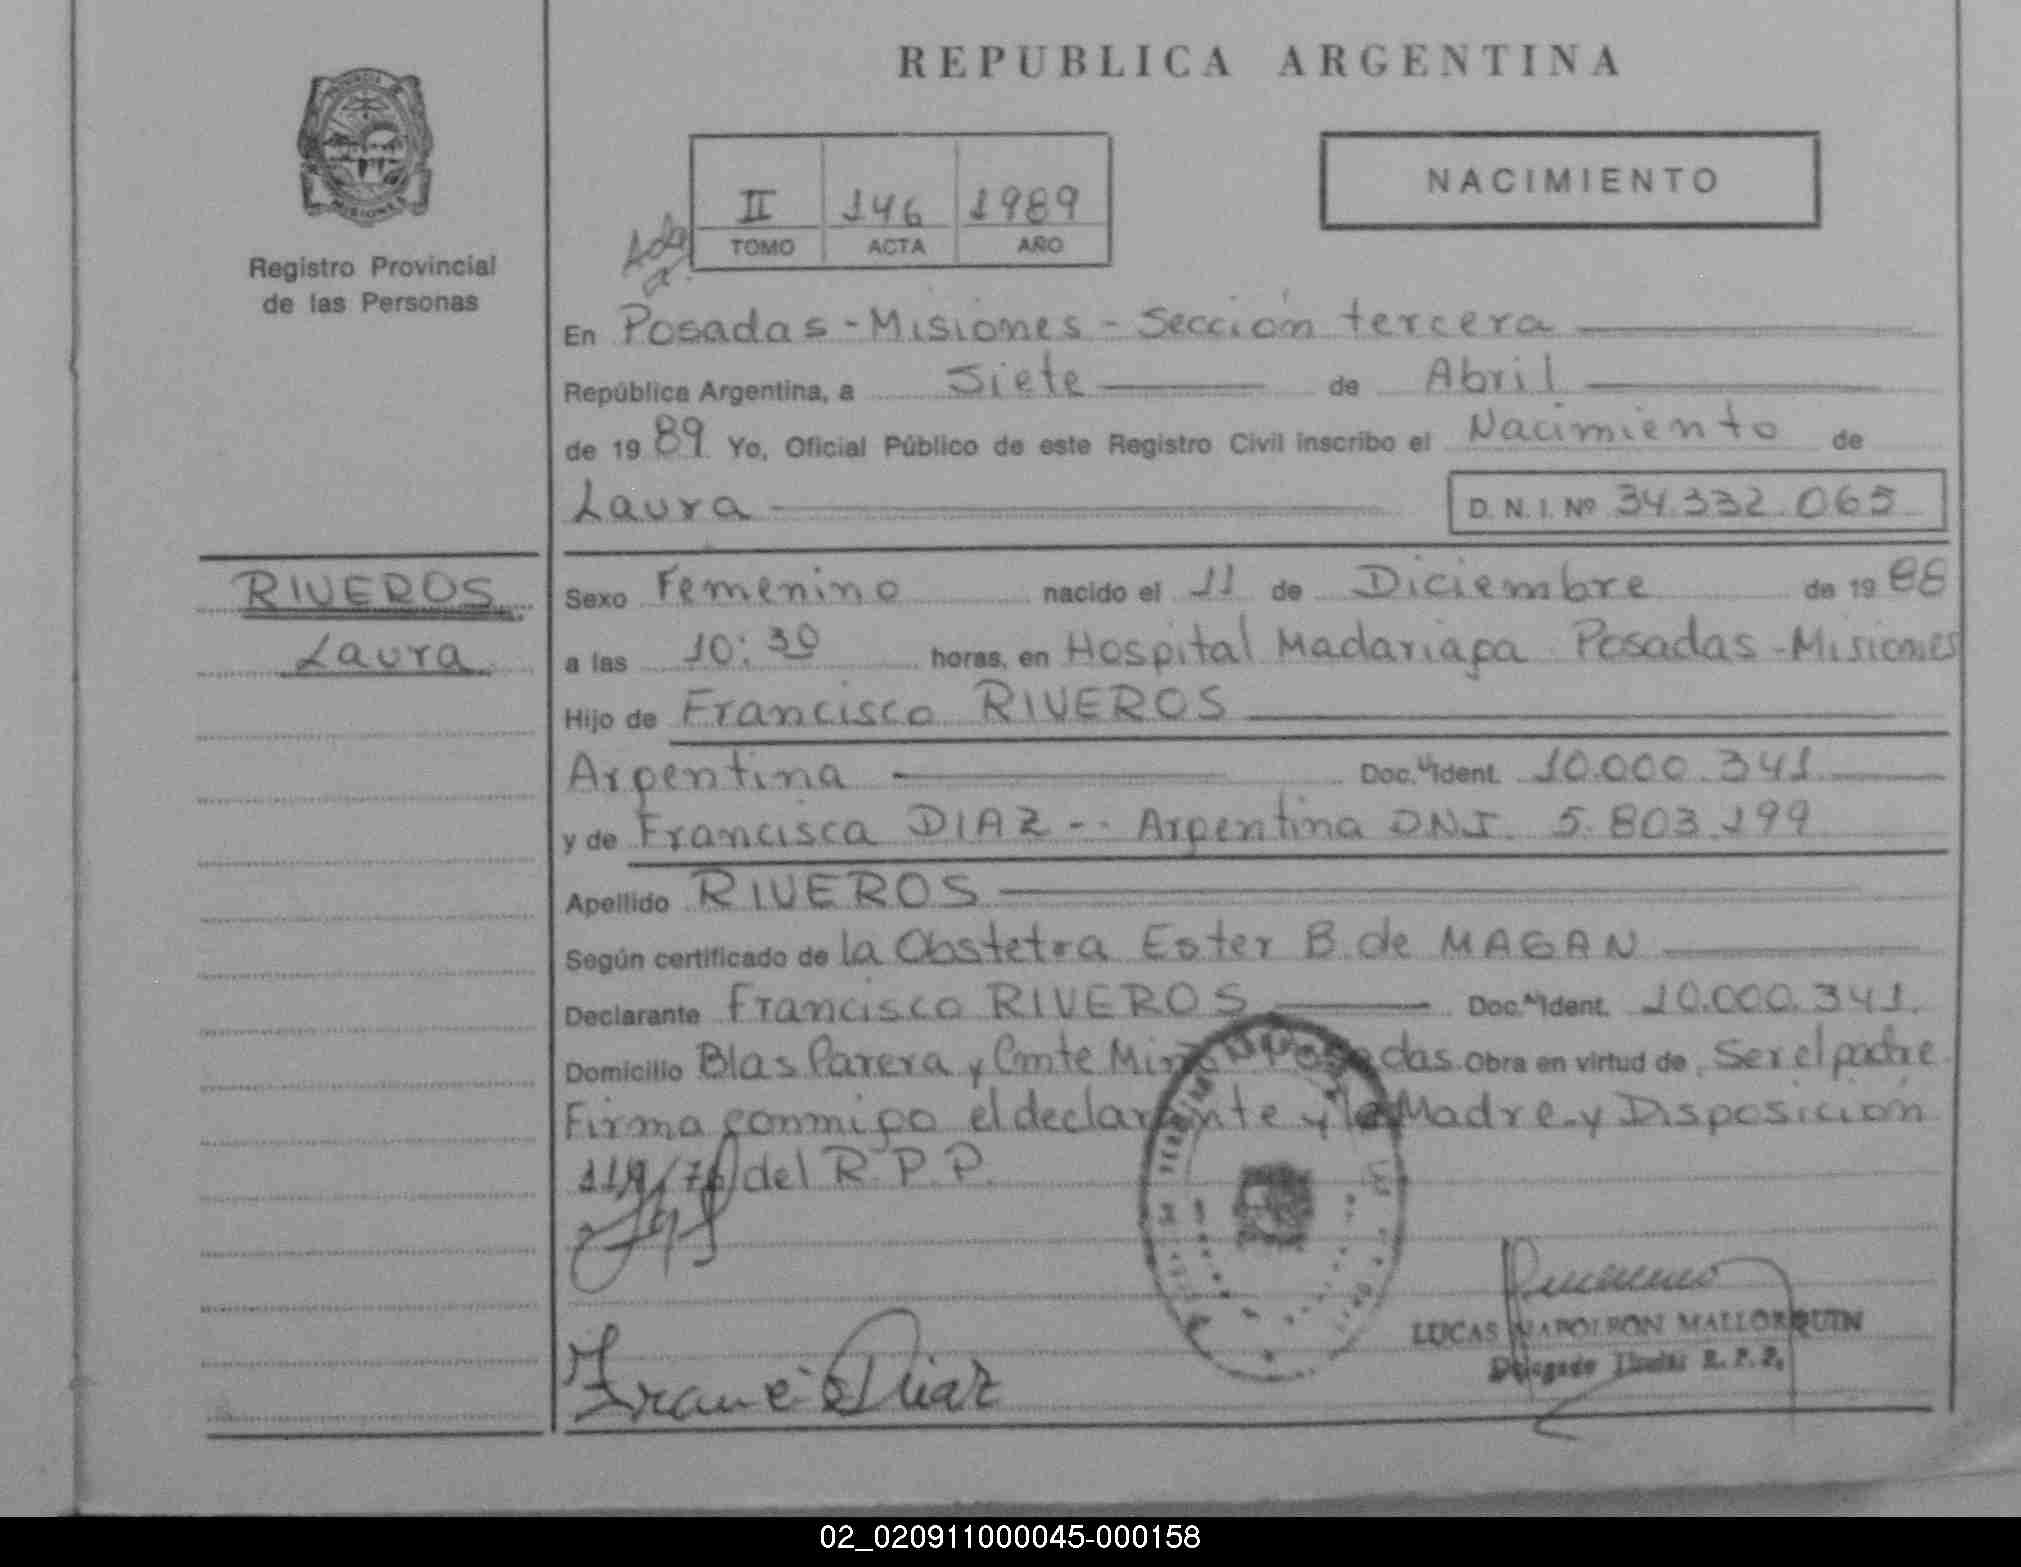 REPUBLICA ARGENTINA
PROVINCIA DE
MISIONES
Registro Provincial
de las Personas
II 146 1989
TOMO ACTA AÑO
NACIMIENTO
En Posadas - Misiones - Sección tercera
República Argentina, a Siete de Abril
de 1989 Yo, Oficial Público de este Registro Civil inscribo el Nacimiento de
Laura D. N. I. Nº 34.332.065
RIVEROS
Laura
Sexo Femenino nacido el 11 de Diciembre de 1988
a las 10:30 horas, en Hospital Madariaga Posadas - Misiones
Hijo de Francisco RIVEROS
Argentina Doc. Ident. 10.000.341
y de Francisca DIAZ -- Argentina DNI. 5.803.199
Apellido RIVEROS
Según certificado de la Obstetra Ester B. de MAGAN
Declarante Francisco RIVEROS Doc. Ident. 10.000.341.
Domicilio Blas Parera y Cmte Miño Posadas Obra en virtud de Ser el padre
Firma conmigo el declarante y la Madre y Disposición
del R.P.P.
Diaz
LUCAS NAPOLEON MALLORQUIN
Delegado Titular R. P. P.
02_020911000045-000158